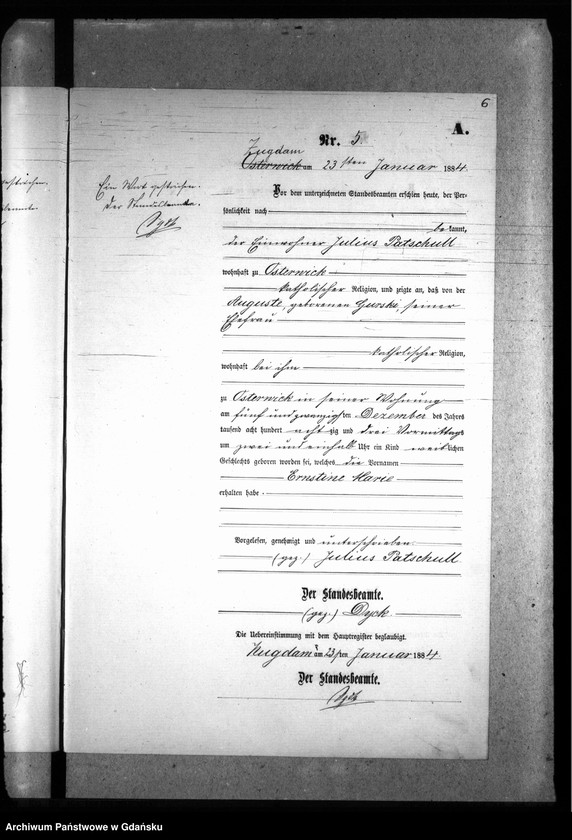 6
A.
Nr. 5
Zugdam
Osterwick am 23sten Januar 1884
Vor dem unterzeichneten Standesbeamten erschien heute, der Per-
sönlichkeit nach
bekannt,
der Einwohner Julius Patschull
wohnhaft zu Osterwick
katholischer Religion, und zeigte an, daß von der
Auguste, geborenen Gurski, seiner
Ehefrau
katholischer Religion,
wohnhaft bei ihm
zu Osterwick in seiner Wohnung
am fünf und zwanzigsten Dezember des Jahrs
tausend acht hundert achtzig und drei Vormittags
um zwei und einhalb Uhr ein Kind weiblichen
Geschlechts geboren worden sei, welches die Vornamen
Ernstine Marie
erhalten habe.
Vorgelesen, genehmigt und unterschrieben
(gez.) Julius Patschull
Der Standesbeamte.
(gez.) Dyck
Die Uebereinstimmung mit dem Hauptregister beglaubigt.
Zugdam am 23sten Januar 1884
Der Standesbeamte.
Dyck
Ein Wort gestrichen.
Der Standesbeamte.
Dyck
Archiwum Państwowe w Gdańsku